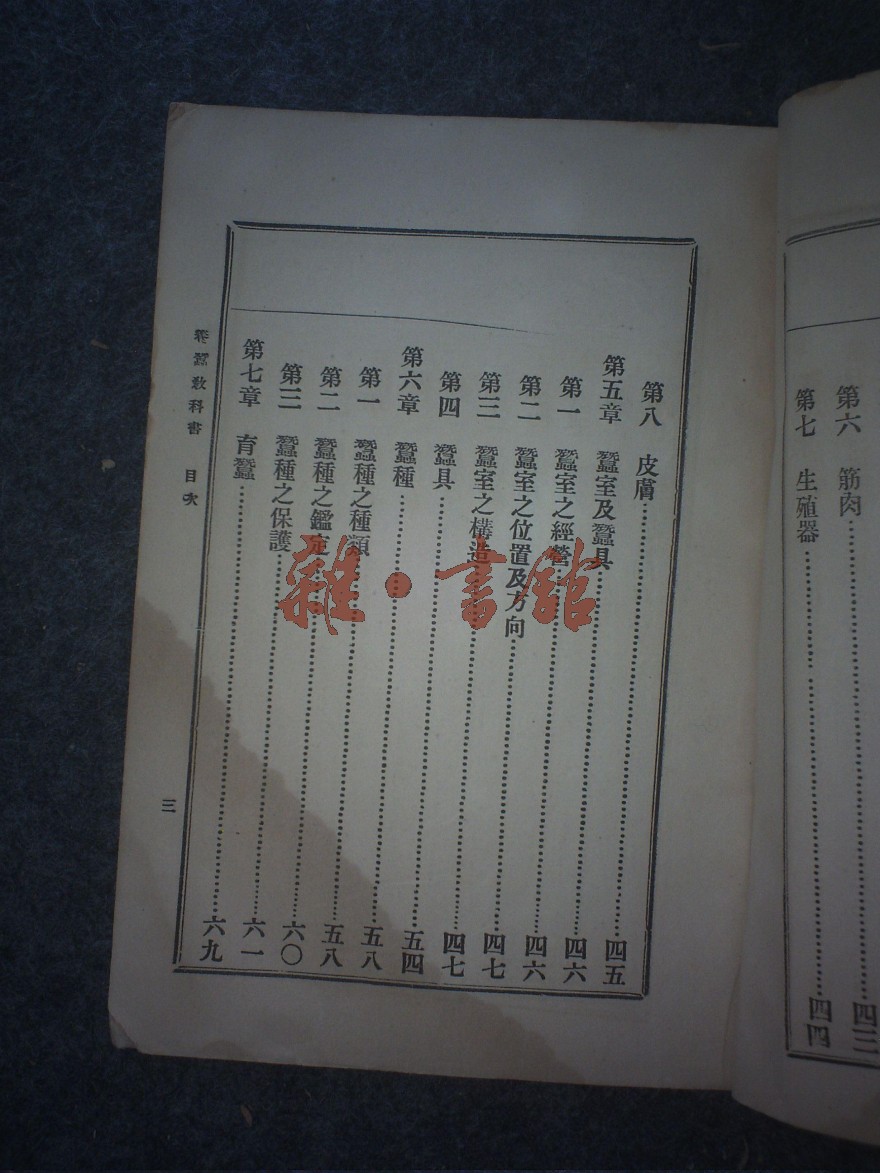 第六　筋肉……四三
第七　生殖器……四四
第八　皮膚……四五
第五章　蠶室及蠶具……四六
第一　蠶室之經營……四六
第二　蠶室之位置及方向……四七
第三　蠶室之構造……四七
第四　蠶具……五四
第六章　蠶種……五八
第一　蠶種之種類……五八
第二　蠶種之鑑定……六〇
第三　蠶種之保護……六一
第七章　育蠶……六九
養蠶教科書　目次
三
雜·書館